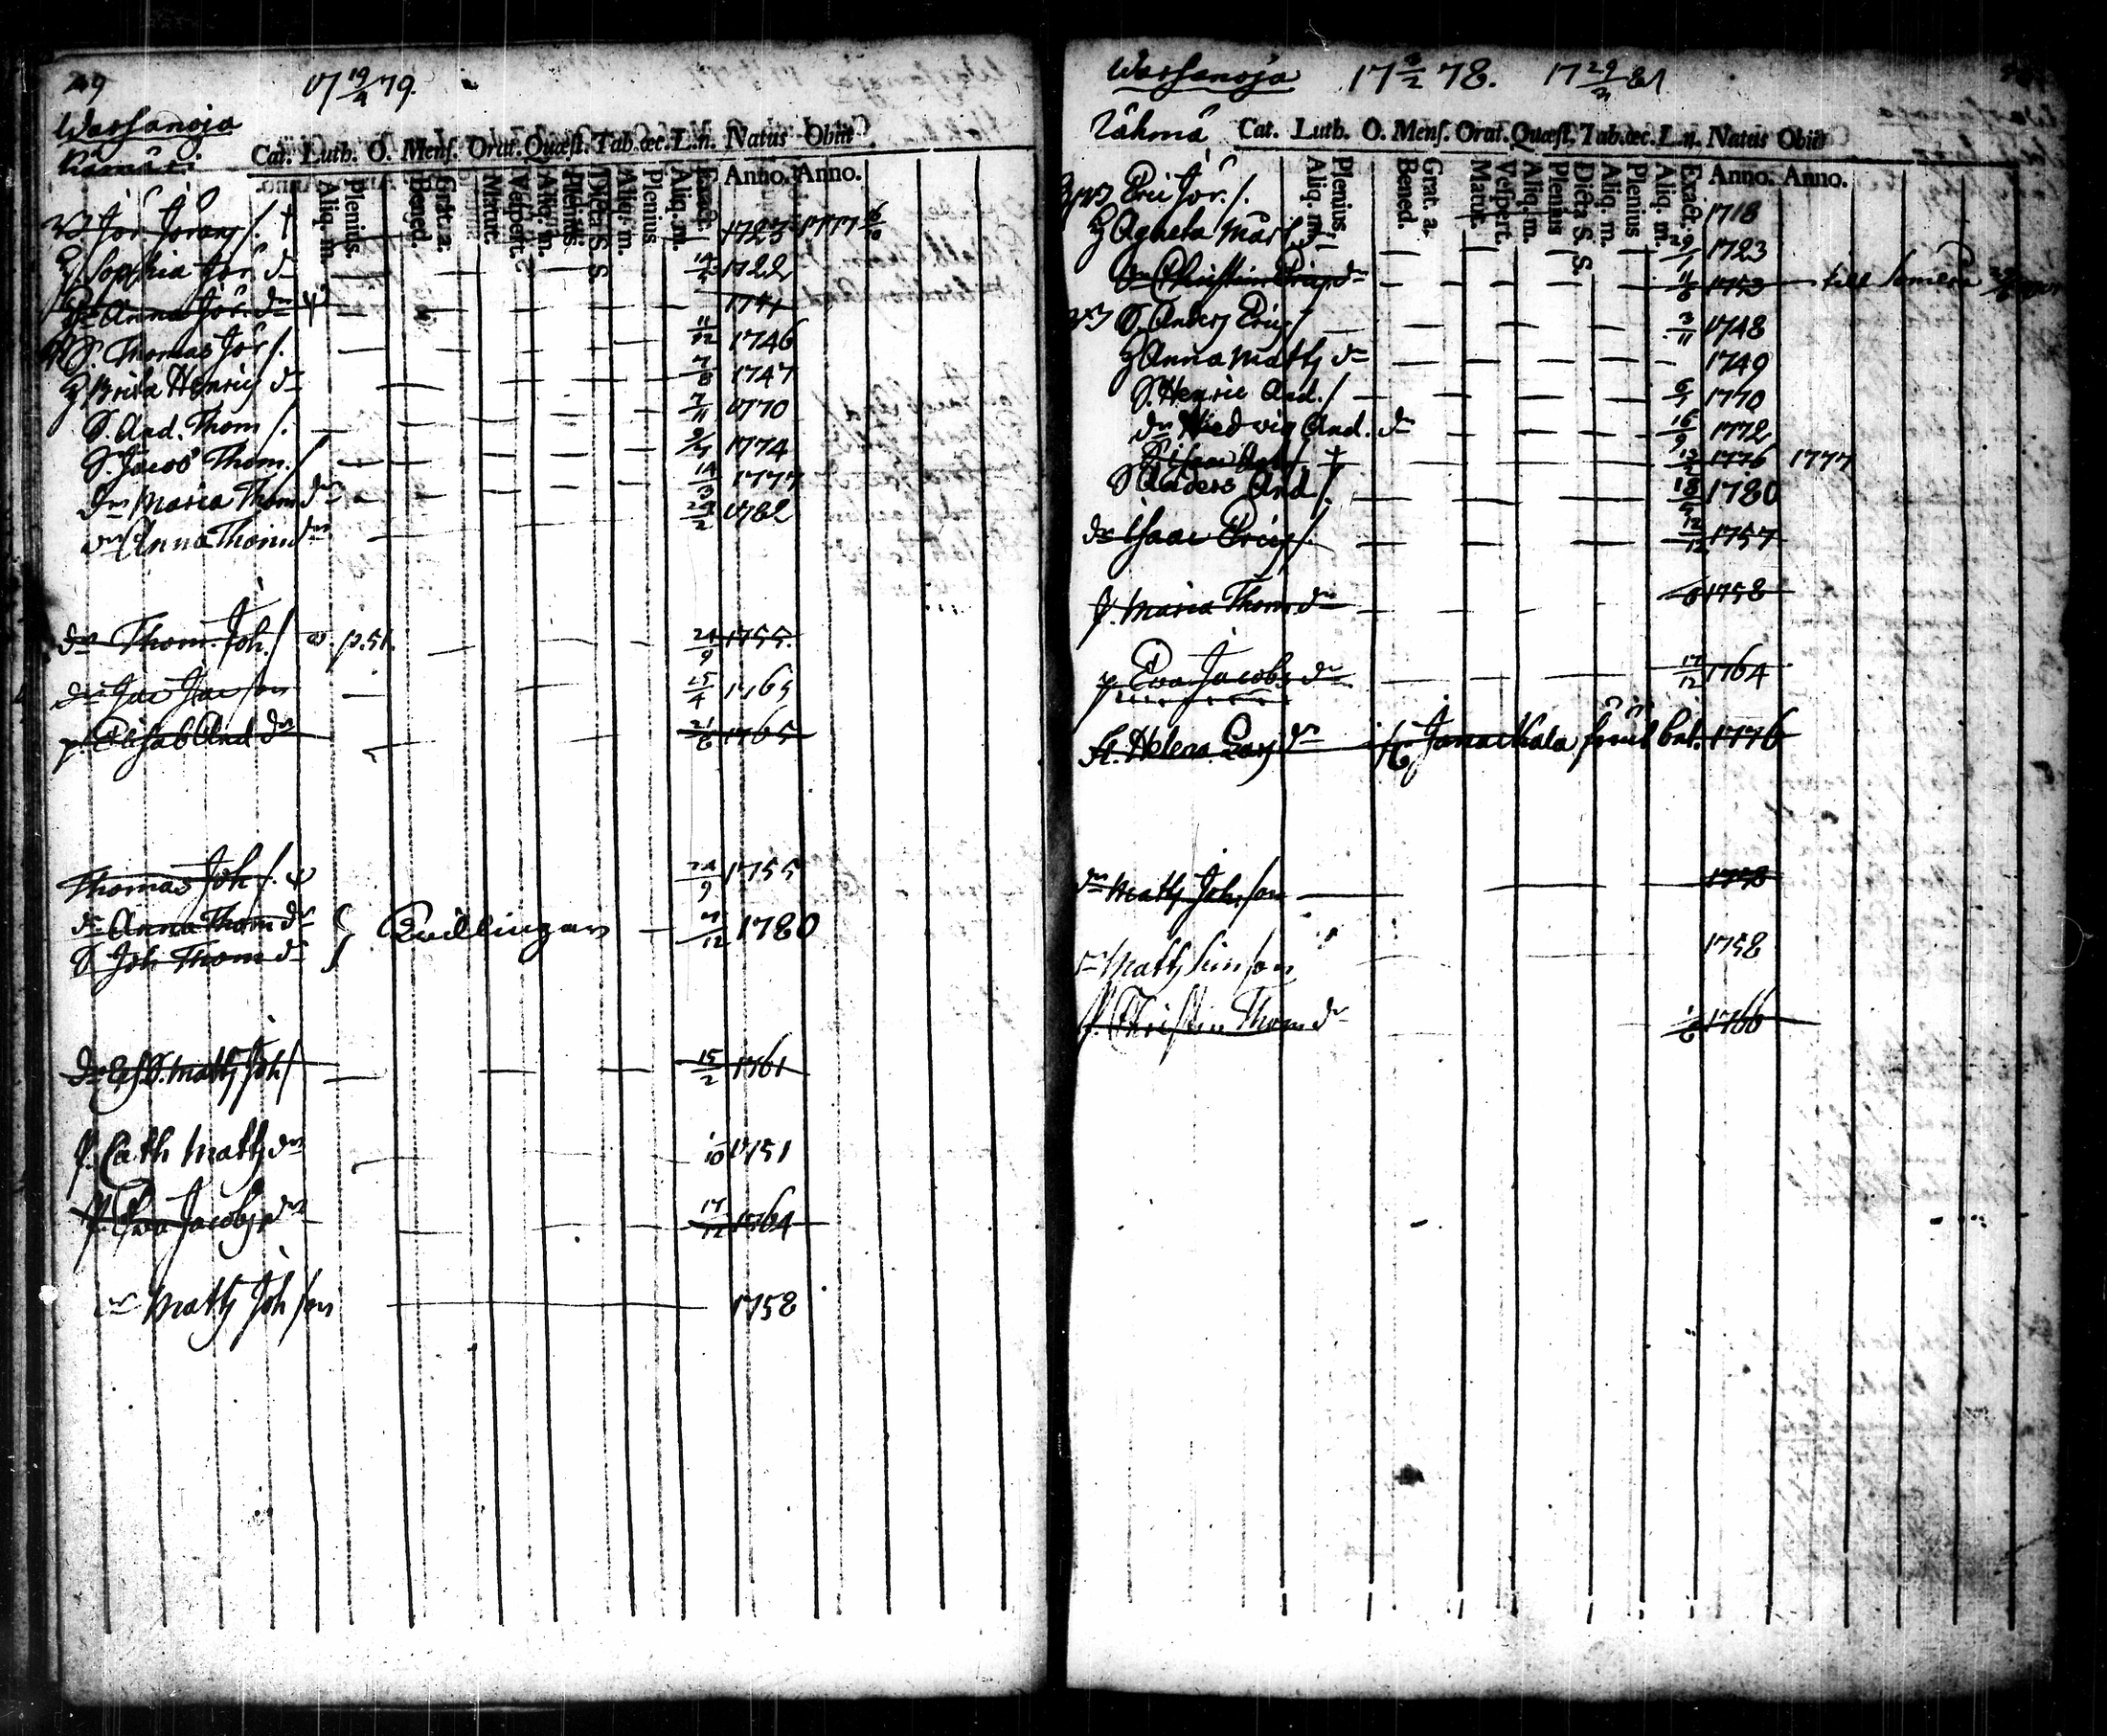 249 17 19/4 79.
Warsanoja
Cat. Luth. O. Mens. Orat. Quæst. Tab. œc. L. n. Natus Obiit
Aliq. m. Plenius. Bened. Grat. a. Matut. Vespert. Aliq. m. Plenius Dicta S. S. Aliq. m. Plenius Aliq. m. Exact. Anno. Anno.
Jör Jörans s. † 1723 1777 6/10
H Sophia Jör. dr 14/5 1722
Dr Anna Jör. dr 1741
S. Thomas Jör s. 11/12 1746
H Brita Henrics dr 7/8 1747
S. And. Thom s. 7/11 1770
S. Jacob Thom. s. 1774
dr Maria Thom dr 14/3 1777
dr Anna Thom dr 24/2 1782
dr Thom. Joh. s. v. p. 51. 21/9 1755.
dr Jac Jacson 15/4 1765
p. Elisab And dr 21/6 1765
Thomas Joh s. 21/9 1755
dr Anna Thom dr } Qvillingar 4/12 1780
S Joh Thom dr
dr S. Matts Joh s 15/2 1761
p. Cath Matts dr 1/10 1751
p. Eva Jacobs dr 17/12 1764
dr Matts Johson 1758
Warsanoja 17 3/2 78. 17 29/3 81
Rähmä Cat. Luth. O. Mens. Orat. Quæst. Tab. œc. L. n. Natus Obiit
Aliq. m. Plenius. Bened. Grat. a. Matut. Vespert. Aliq. m. Plenius Dicta S. S. Aliq. m. Plenius Aliq. m. Exact. Anno. Anno.
Eric Jör. s. 1718
H Agneta Marc. dr 29/1 1723
Dr Christin Erics dr 11/6 1753 till Somero
S. Anders Erics s 3/11 1748
H Anna Matts dr 1749
S. Henric And. s 6/7 1770
dr Hedvig And. dr 16/9 1772
S Isaac And s † 12/2 1776 1777
S Anders And s. 18/5 1780
dr Isaac Erics s. 12/12 1757
p. Maria Thom dr 1758
p. Eva Jacobs dr 17/12 1764
Fr. Helena Lars dr fr. Janackala 1776
dr Matts Johsson 1758
dr Matts Simson 1758
p. Christin Thom dr 1/6 1766